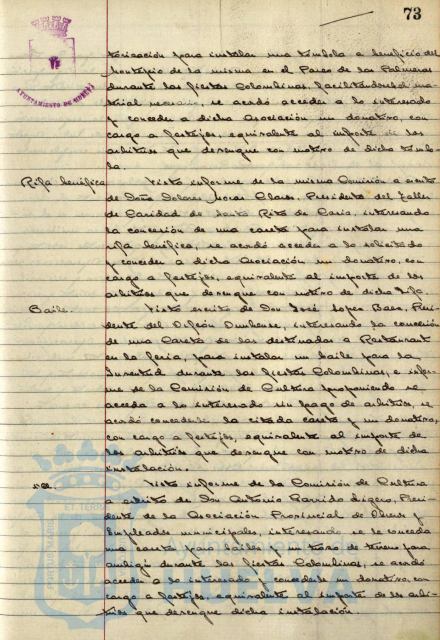 73
AYUNTAMIENTO DE HUELVA
torización para instalar una tómbola a beneficio del
Montepio de la misma en el Paseo de las Palmeras
durante las fiestas Colombinas, facilitándoseles el ma-
terial necesario, se acordó acceder a lo interesado
y conceder a dicha Asociación un donativo, con
cargo a festejos, equivalente al importe de los
arbitrios que devengue con motivo de dicha tómbo-
la.
Rifa benéfica
Visto informe de la misma Comisión a escrito
de Doña Dolores Claus, Presidenta del Taller
de Caridad de Santa Rita de Casia, interesando
la concesión de una caseta para instalar una
rifa benéfica, se acordó acceder a lo solicitado
y conceder a dicha Asociación un donativo, con
cargo a festejos, equivalente al importe de los
arbitrios que devengue con motivo de dicha rifa.
Baile.
Visto escrito de Don José Lopez Baez, Presi-
dente del Orfeón Onubense, interesando la concesión
de una Caseta de las destinadas a Restaurant
en la feria, para instalar un baile para la
Juventud durante las fiestas Colombinas, e infor-
me de la Comisión de Cultura proponiendo se
acceda a lo interesado sin pago de arbitrios, se
acordó concederle la citada caseta y un donativo,
con cargo a festejos, equivalente al importe de
los arbitrios que devengue con motivo de dicha
instalación.
Visto informe de la Comisión de Cultura
a escrito de Don Antonio Garrido Ligero, Presi-
dente de la Asociación Provincial de Obreros y
Empleados municipales, interesando se le conceda
una caseta para bailes y metros de terreno para
ambigú durante las fiestas Colombinas, se acordó
acceder a lo interesado y concederle un donativo, con
cargo a festejos, equivalente al importe de los arbi-
trios que devengue dicha instalación.